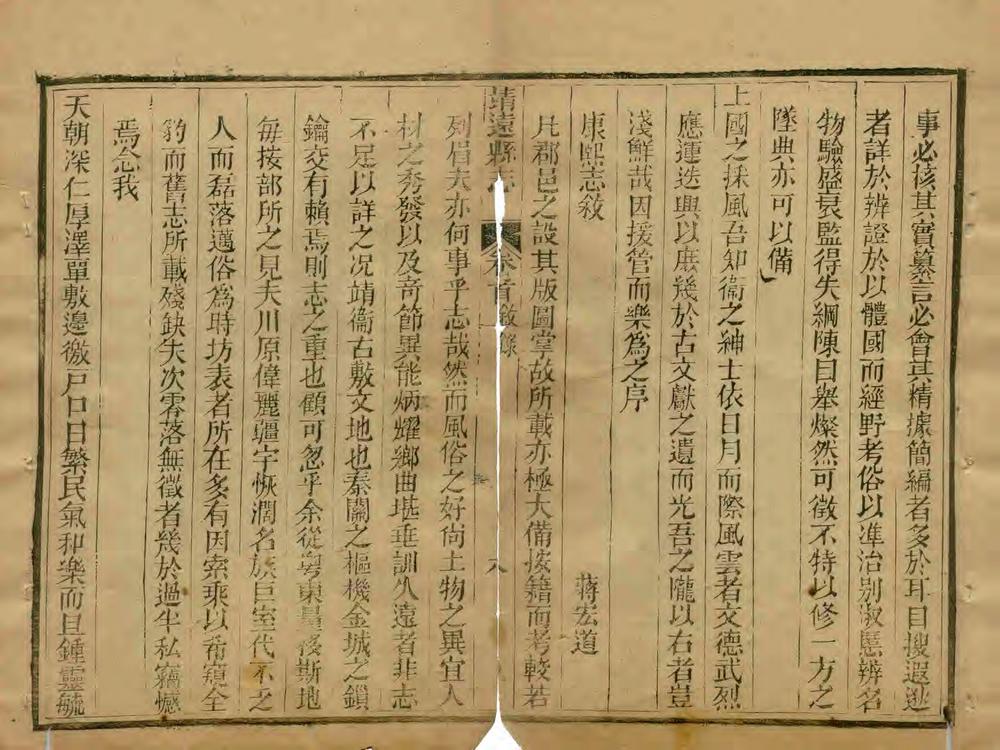 事必核其實纂言必會其精據簡編者多於耳目搜遐逖
者詳於辨證於以體國而經野考俗以準治別淑慝辨名
物驗盛衰監得失綱陳目舉燦然可徵不特以修一方之
墜典亦可以備
上國之採風吾知衞之紳士依日月而際風雲者文德武烈
應運迭興以庶幾於古文獻之遺而光吾之隴以右者豈
淺鮮哉因援管而樂為之序
康熙志敘 蔣宏道
凡郡邑之設其版圖掌故所載亦極大備按籍而考較若
靖遠縣志 卷首敘錄 八
列眉夫亦何事乎志哉然而風俗之好尚土物之異宜人
材之秀發以及奇節異能炳耀鄉曲堪垂訓久遠者非志
不足以詳之况靖衞古敷文地也秦關之樞機金城之鎖
鑰交有賴焉則志之重也顧可忽乎余從粤東量移斯地
每按部所之見夫川原偉麗疆宇恢濶名族巨室代不乏
人而磊落邁俗為時坊表者所在多有因索乘以希窺全
豹而舊志所載殘缺失次零落無徵者幾於過半私竊憾
焉念我
天朝深仁厚澤單敷邊徼戸口日繁民氣和樂而且鍾靈毓